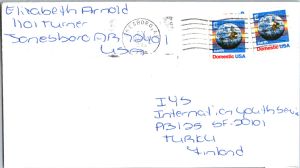 Elizabeth Arnold
1101 Turner
Jonesboro AR 72401
USA
JONESBORO, AR
Domestic USA
Domestic USA
IYS
Internation Youth Service
PB 125 SF-20101
TURKU
Finland